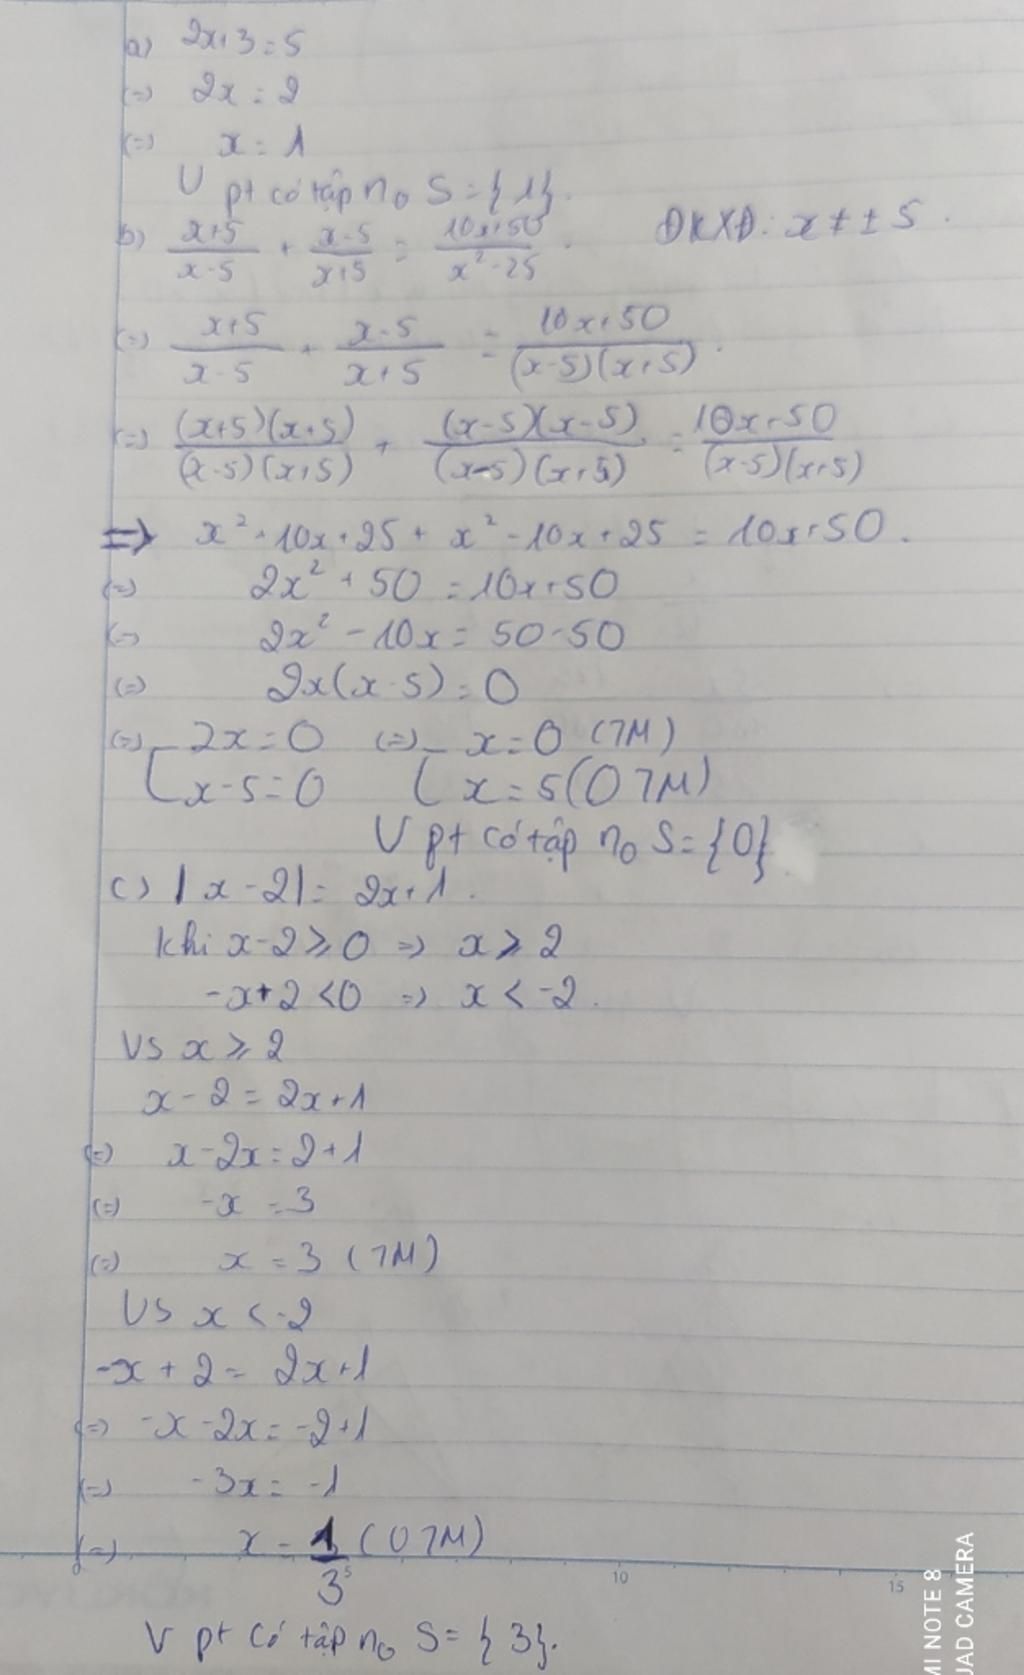 a) 2x+3=5
(=) 2x = 2
(=) x = 1
V pt có tập n₀ S={1}.
b) (x+5)/(x-5) + (x-5)/(x+5) = (10x+50)/(x²-25). ĐKXĐ: x ≠ ± 5.
(=) (x+5)/(x-5) + (x-5)/(x+5) = (10x+50)/((x-5)(x+5)).
(=) ((x+5)(x+5))/((x-5)(x+5)) + ((x-5)(x-5))/((x-5)(x+5)) = (10x+50)/((x-5)(x+5))
=> x²+10x+25 + x²-10x+25 = 10x+50.
(=) 2x²+50 = 10x+50
(=) 2x²-10x = 50-50
(=) 2x(x-5) = 0
(=) [ 2x=0 (=) [ x=0 (TM)
x-5=0 x=5(0 TM)
V pt có tập n₀ S={0}
c) |x-2| = 2x+1.
Khi x-2⩾0 => x⩾2
-x+2<0 => x<-2.
Vs x⩾2
x-2=2x+1
(=) x-2x=2+1
(=) -x = 3
(=) x = 3 (TM)
Vs x <-2
-x+2= 2x+1
(=) -x-2x=-2+1
(=) -3x= -1
(=) x = 1/3 (0 TM)
0 5 10 15
V pt có tập n₀ S= {3}.
MI NOTE 8
UAD CAMERA